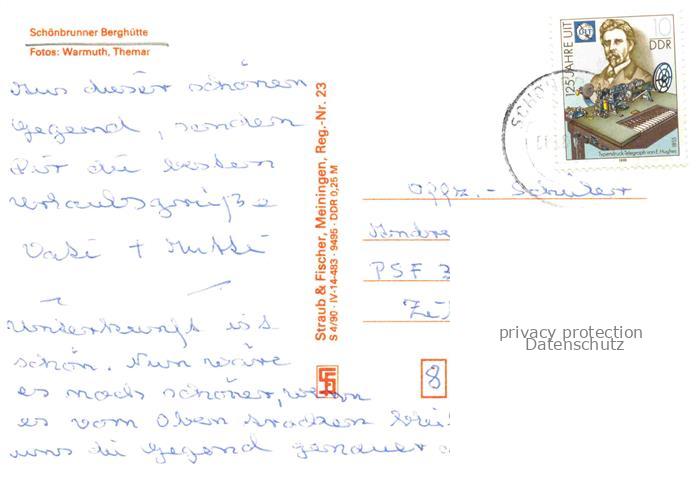 Schönbrunner Berghütte
Fotos: Warmuth, Themar
Aus dieser schönen
Gegend, senden
Dir die besten
Urlaubsgrüße
Vati + Mutti
Unterkunft ist
schön. Nun wäre
es noch schöner, wenn
es vom Oben trocken blei
uns die Gegend genauer
Straub & Fischer, Meiningen, Reg.-Nr. 23
S 4/90 · IV-14-483 · 9495 · DDR 0,25 M
125 JAHRE UIT
UIT
10
DDR
Typendruck-Telegraph von E. Hughes
1855
1990
SCHÖN
Offz. - Schüler
Andre
PSF 3
8
privacy protection
Datenschutz